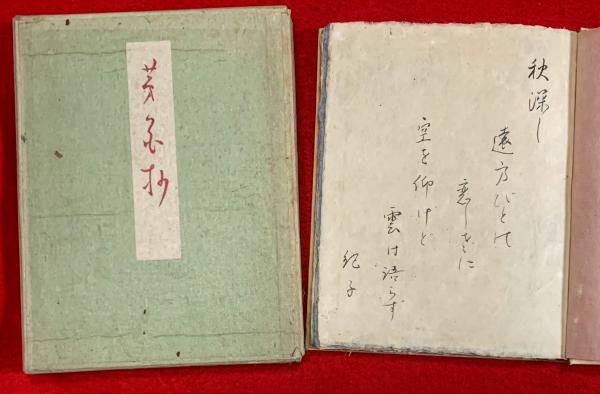 抄
秋深し
遠方びとの
恋しさに
空を仰げど
雲は語らず
紀子